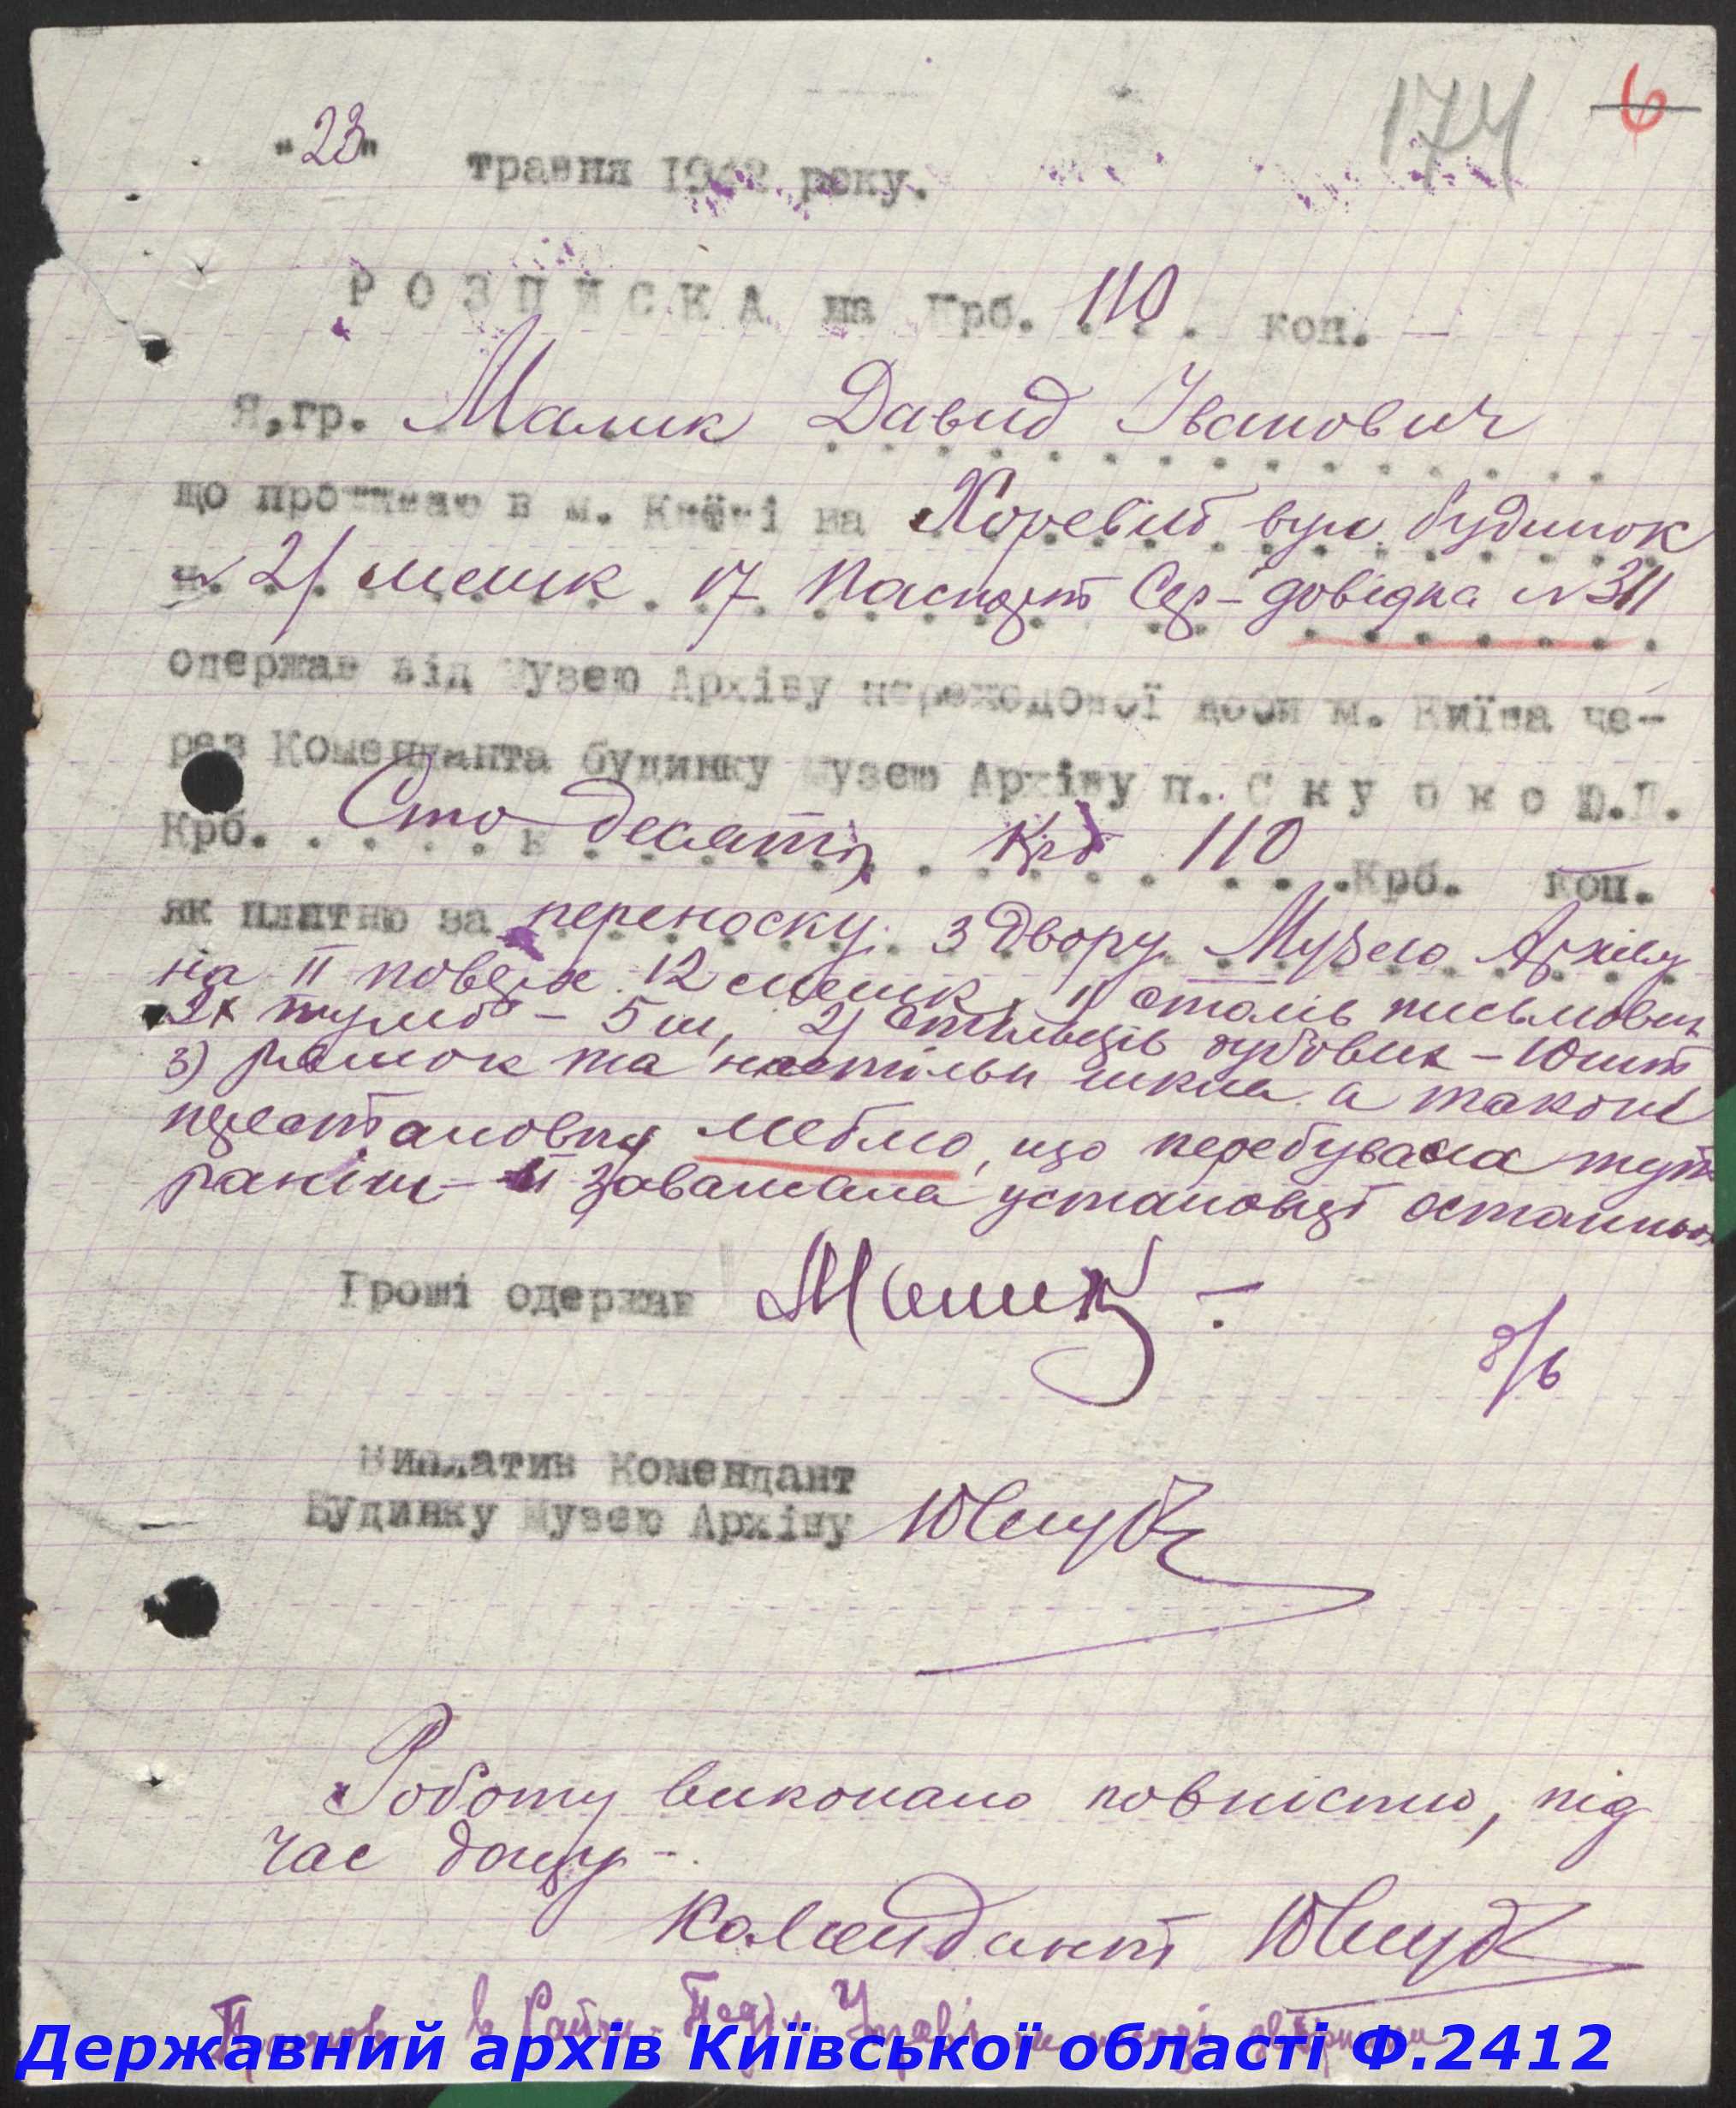 174 6
"23" травня 1942 року.
РОЗПИСКА на Крб. 110 . коп. —
Я,гр. Малик Давид Іванович
що проживаю в м. Києві на Хоревиб вул. будинок
№ 21 мешк 17 Паспорт Сер- довідка № 311
одержав від Музею Архіву переходової доби м. Київа че-
рез Коменданта будинку Музею Архіву п.
Крб. Сто десять Крб 110 .Крб. коп.
як платню за переноску з двору Музею Архіву
на ІІ поверх 12 мешк, 1) столів письмових
2х тумб - 5 ш, 2) стільців дубових - 10 шт
3) рамок та настільн шкла а також
перестановку меблю, що перебувала тут
раніш - й заважала установці останньої
Гроші одержав Малик -
8/6
Виплатив Комендант
Будинку Музею Архіву
Роботу виконано повністю, під
час дощу -
Комендант
в Район. Поділ. Управі
Державний архів Київської області Ф.2412